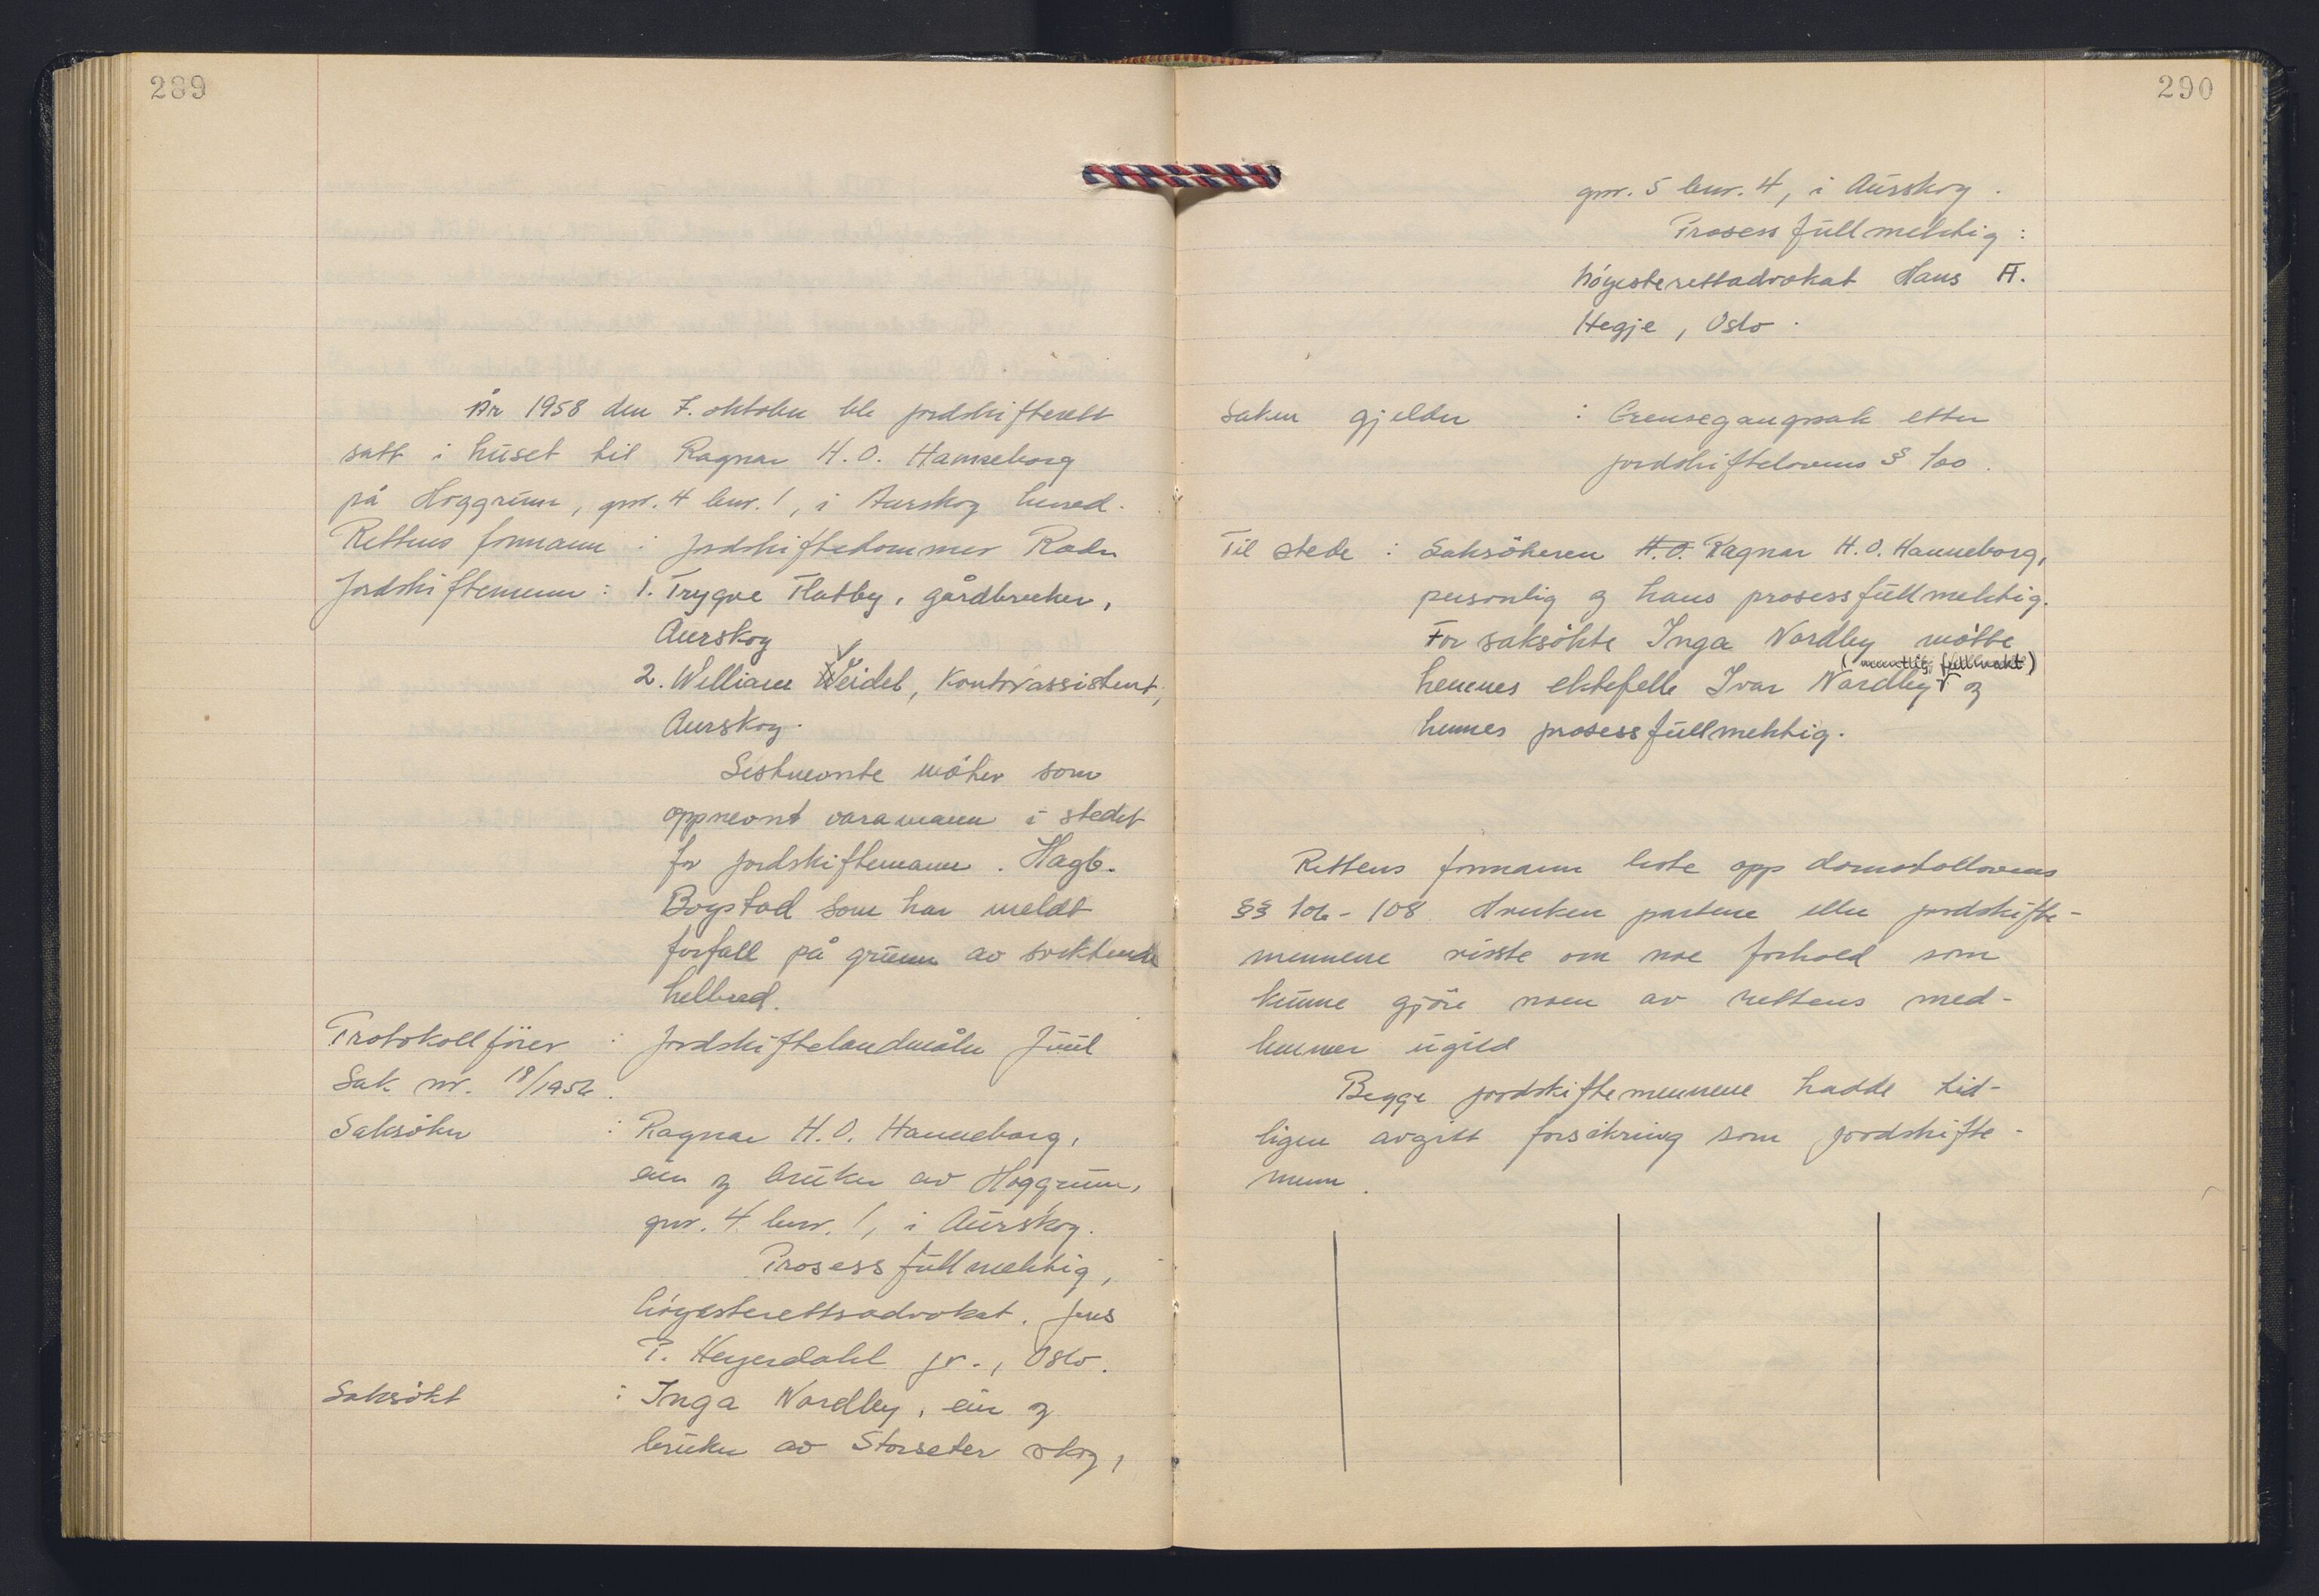 289
År 1958 den 7. oktober ble jordskifterett
satt i huset til Ragnar H. O. Hanneborg
på Hoggrunn, gnr. 4 bnr. 1, i Aurskog herred.
Rettens formann : jordskiftedommer Roder
Jordskiftemenn : 1. Trygve Flatby, gårdbruker,
Aurskog
2. William Veidel, kontorassistent,
Aurskog.
Sistnevnte möter som
oppnevnt varamann i stedet
for jordskiftemann. Hagb.
Bogstad som har meldt
forfall på grunn av sviktende
helbred.
Protokollförer : jordskiftelandmåler Juul
Sak nr. 18/1956.
Saksöker : Ragnar H. O. Hanneborg,
eier og bruker av Hoggrunn,
gnr. 4 bnr. 1, i Aurskog.
Prosessfullmektig,
höyesterettsadvokat. Jens
P. Heyerdahl jr., Oslo.
Saksökt : Inga Nordby, eier og
bruker av Storseter skog,
290
gnr. 5 bnr. 4, i Aurskog.
Prosessfullmektig :
höyesterettadvokat Hans H.
Hegje, Oslo.
Saken gjelder : Grensegangssak etter
jordskiftelovens § 100.
Til stede : Saksökeren H. O. Ragnar H. O. Hanneborg,
personlig og hans prosessfullmektig.
For saksökte Inga Nordby mötte
(muntlig fullmakt)
hennes ektefelle Ivar Nordby og
hennes prosessfullmektig.
Rettens formann leste opp domstollovens
§§ 106 - 108. Hverken partene eller jordskifte-
mennene visste om noe forhold som
kunne gjöre noen av rettens med-
lemmer ugild
Begge jordskiftemennene hadde tid-
ligere avgitt forsikring som jordskifte-
menn.